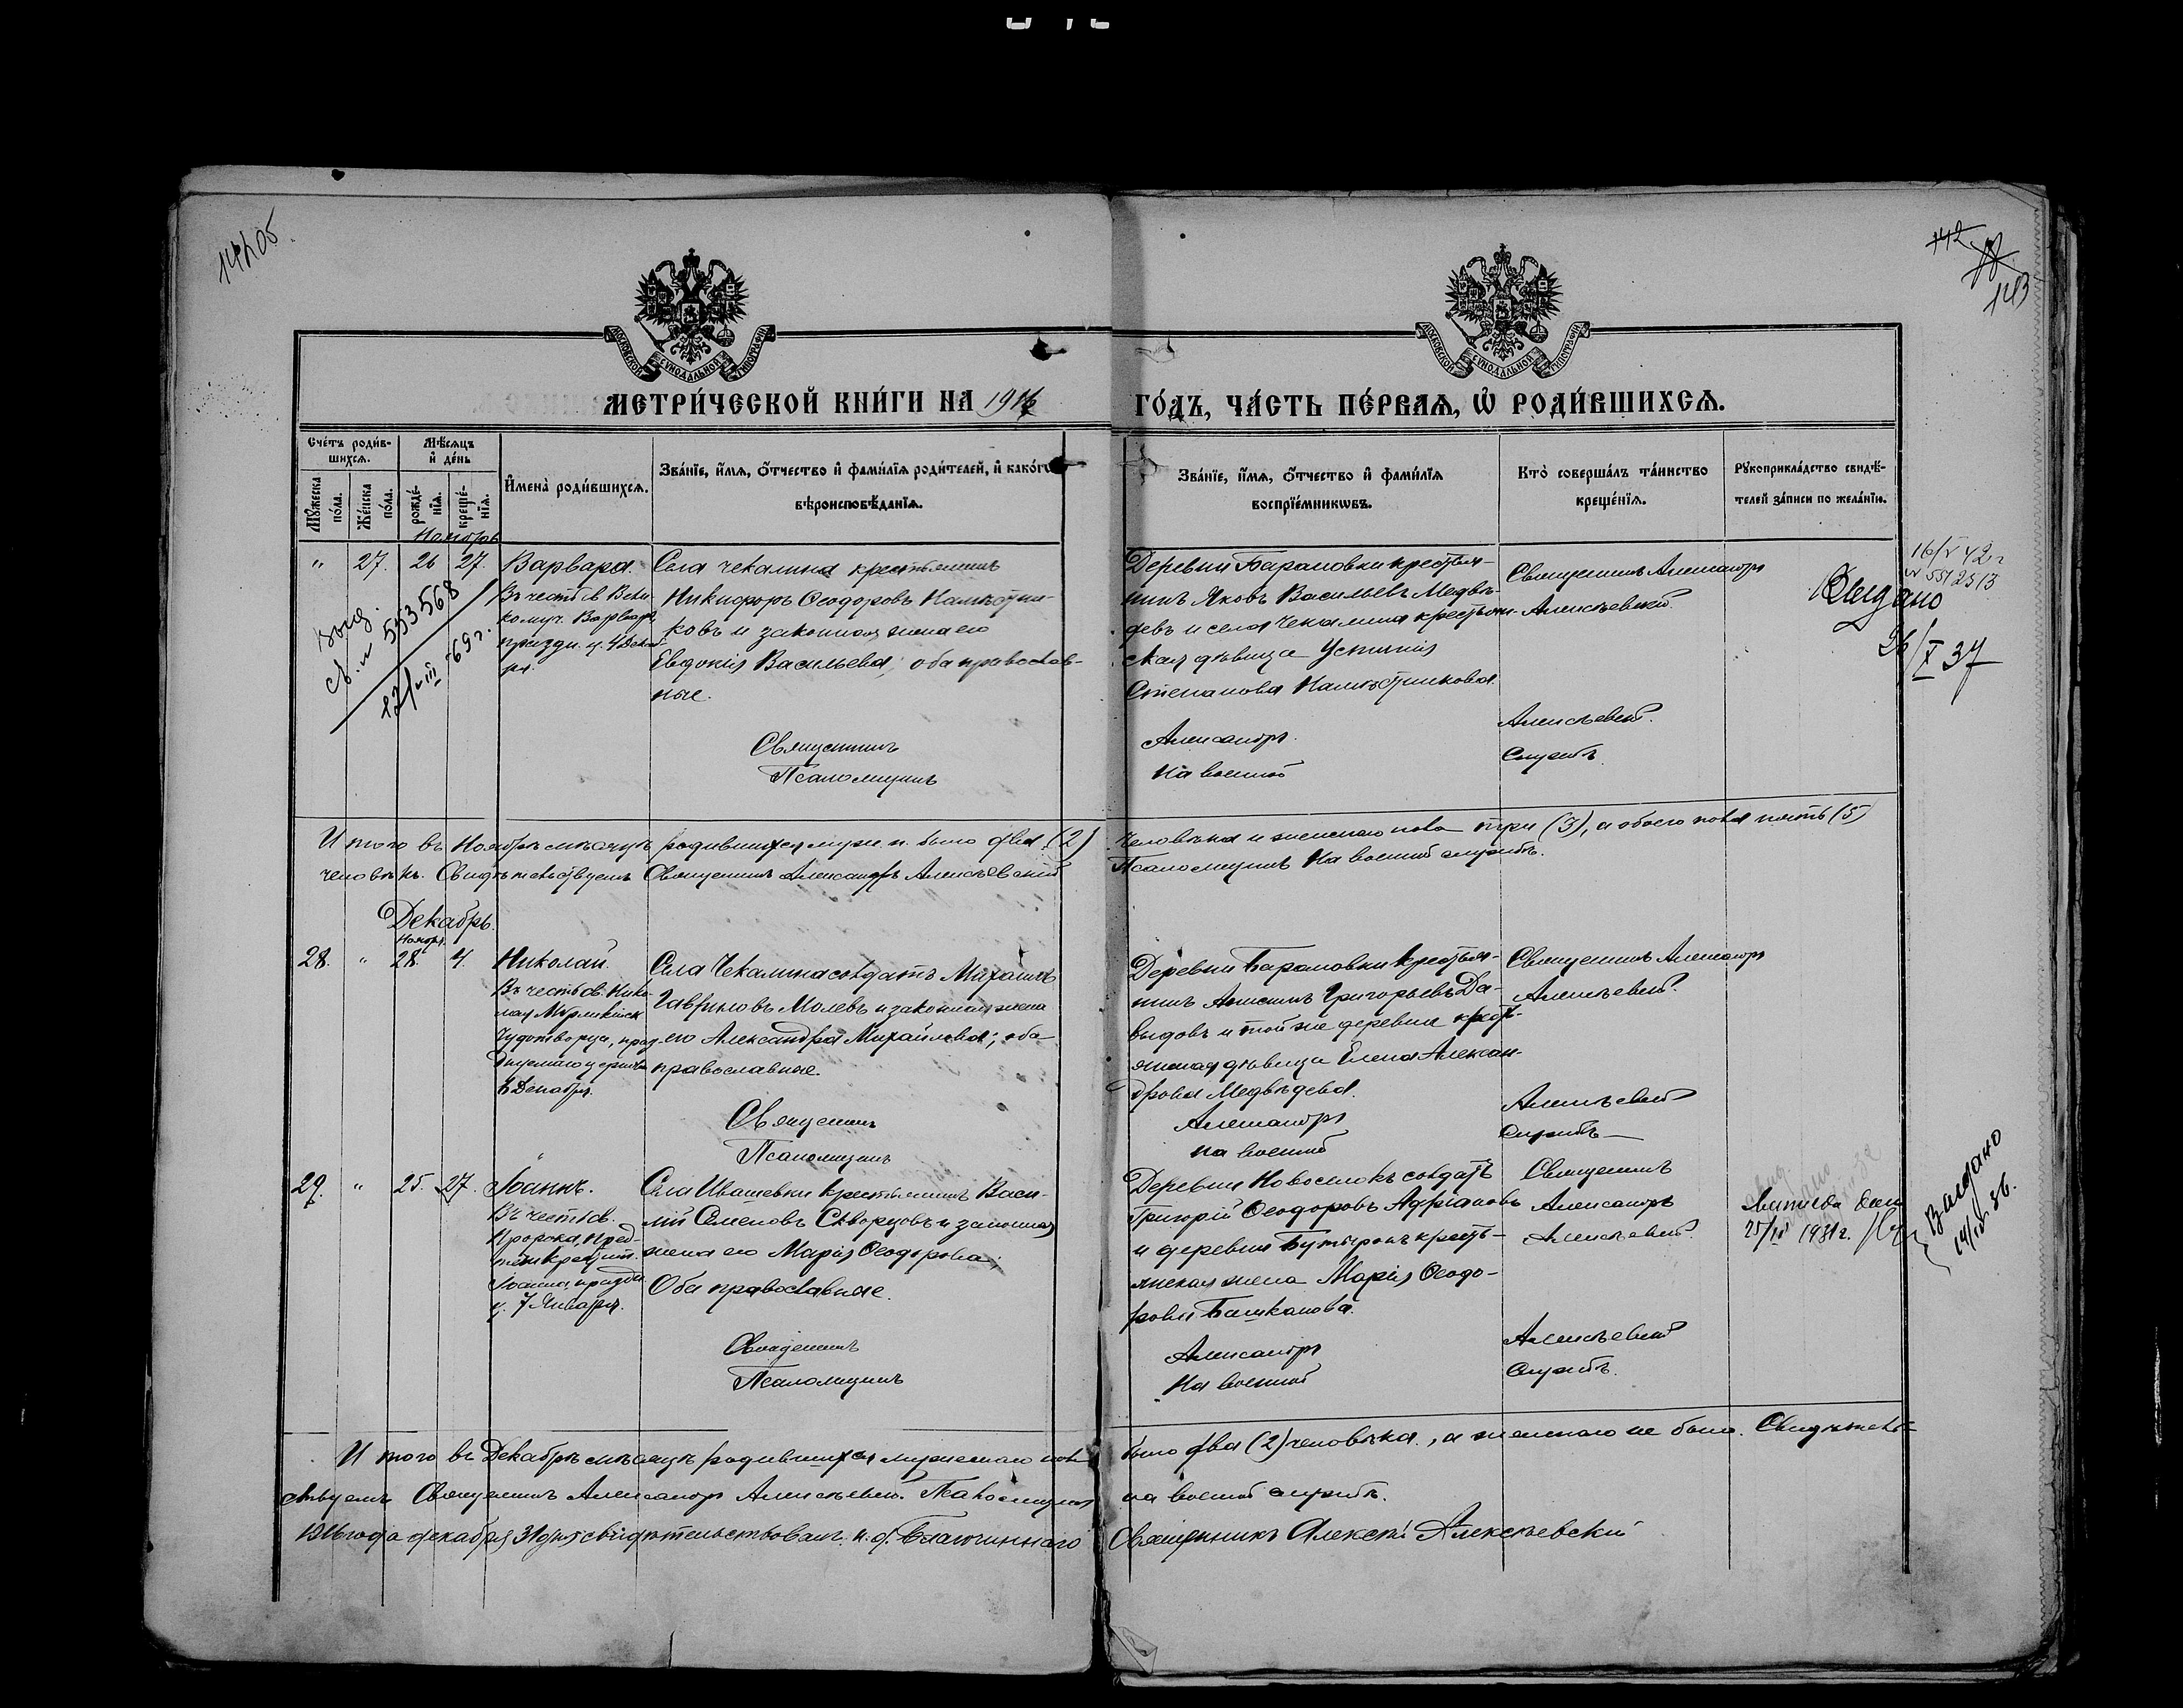 142об.
142
143
МОСКОВСКОЙ СУНОДАЛЬНОЙ ТИПОГРАФІИ
МОСКОВСКОЙ СУНОДАЛЬНОЙ ТИПОГРАФІИ
МЕТРИ́ЧЕСКОЙ КНИ́ГИ НА 1916 ГО́ДЪ, ЧА́СТЬ ПЕ́РВАЯ, Ѡ РОДИ́ВШИХСЯ.
Сче́тъ роди́вшихся.
Мѣ́сяцъ и де́нь
Му́жеска по́ла.
Же́нска по́ла.
рожде́нія.
креще́нія.
Имена̀ роди́вшихся.
Зва́ніе, и́мя, о́тчество и фами́лія роди́телей, и како́гѡ
вѣроисповѣ́данія.
Зва́ніе, и́мя, о́тчество и фами́лія
воспріе́мникѡвъ.
Кто̀ соверша́лъ та́инство
креще́нія.
Рукоприкла́дство свидѣ́-
телей за́писи по жела́нію.
Ноябрь
" 27. 26 27.
Варвара.
Въ честь св. Вели-
комуч. Варвары,
праздн. ц. 4 Дека
ря.
Села Чекалина крестьянинъ
Никифоръ Ѳеодоровъ Намѣстни-
ковъ и законная жена его
Евдокія Васильева; оба православ-
ные.
Священникъ
Псаломщикъ
Деревни Барановки крестья-
нинъ Яковъ Васильевъ Медвѣ-
девъ и села Чекалина крестьян-
ская дѣвица Устинія
Степанова Намѣстникова.
Александръ
на военной
Священникъ Александръ
Алексѣевскій.
Алексѣевскій.
службѣ.
выд.
св. н 553568
12/VIII 69г.
16/V 42г
Выдано
26/X 37
Итого въ Ноябрѣ мѣсяцѣ родившихся муж. п. было два (2) человѣка и женскаго пола три (3), а обоего пола пять (5)
человѣкъ. Свидѣтельствуемъ Священникъ Александръ Алексѣевскій Псаломщикъ на военной службѣ.
Декабрь.
Ноября
28. " 28. 4.
Николай.
Въ честь св. Нико-
лая Мѵрликійск
Чудотворца, праз-
днуемаго церковію
6 Декабря.
Села Чекалина солдатъ Михаилъ
Гавриловъ Молевъ и законная жена
его Александра Михайлова; оба
православные.
Священникъ
Псаломщикъ
Деревни Барановки крестья-
нинъ Анисимъ Григорьевъ Да-
выдовъ и той же деревни крест-
янская дѣвица Елена Алексан-
дрова Медвѣдева.
Александръ
на военной
Священникъ Александръ
Алексѣевскій.
Алексѣевскій
службѣ
29. " 25. 27.
Іоаннъ.
Въ честь св.
Пророка, Пред-
течи Крестит.
Іоанна, праздн.
ц. 7 Января.
Села Ивашевки крестьянинъ Васи-
лій Семеновъ Скворцовъ и законная
жена его Марія Ѳеодорова;
Оба православные.
Священникъ
Псаломщикъ
Деревни Новоселокъ солдатъ
Григорій Ѳеодоровъ Афріановъ
и деревни Бутырокъ кресть-
янская жена Марія Ѳеодо-
рова Башканова.
Александръ
На военной
Священникъ
Александръ
Алексѣевскій.
Алексѣевскій
службѣ.
25/IV 1931г.
Выдано
14/III 36.
Итого въ Декабрѣ мѣсяцѣ родившихся мужескаго пола было два (2) человѣка, а женскаго не было. Свидѣтель-
ствуемъ Священникъ Александръ Алексѣевскій. Псаломщикъ на военной службѣ.
1916 года декабря 31 дня свидѣтельствовалъ и. д. Благочиннаго Священникъ Алексѣй Алексѣевскій